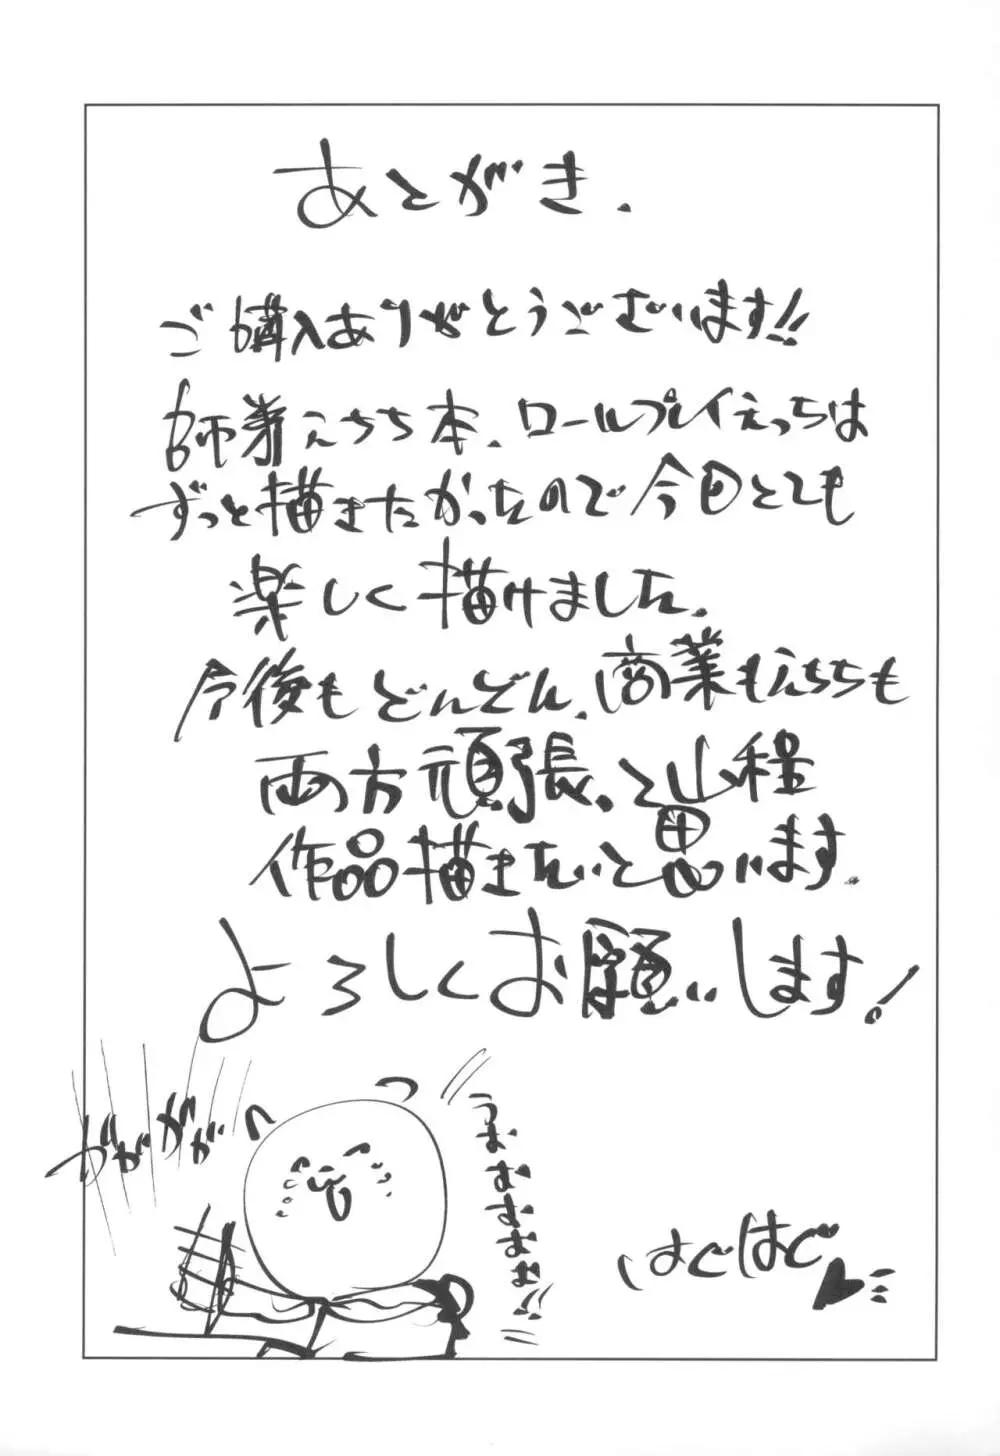 あとがき.
ご購入ありがとうございます!!
師弟えちち本、ロールプレイえっちは
ずっと描きたかったので今回とても
楽しく描けました。
今後もどんどん、商業もえちちも
両方頑張、と山程
作品描きたいと思います。
よろしくお願いします!
ががががが
うおおおおお
はぐはぐ